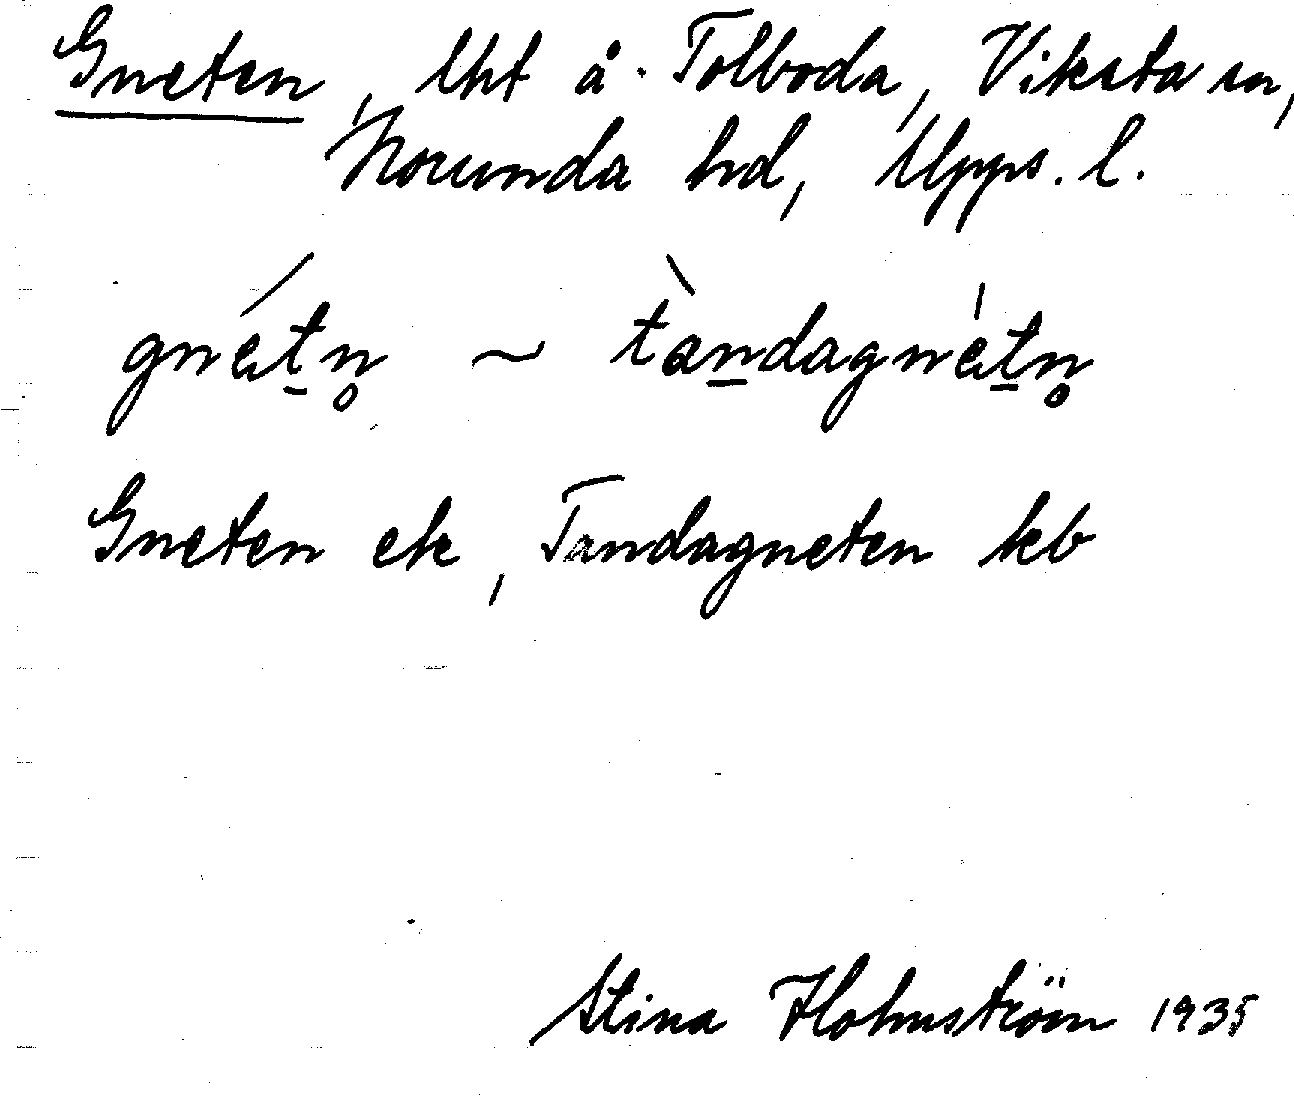 Gneten, lht å Tolboda, Viksta sn,
Norunda hd, Upps. l.
gnétn̥ ~ tàndagnétn̥
Gneten ek, Tandagneten kb
Stina Holmström 1935